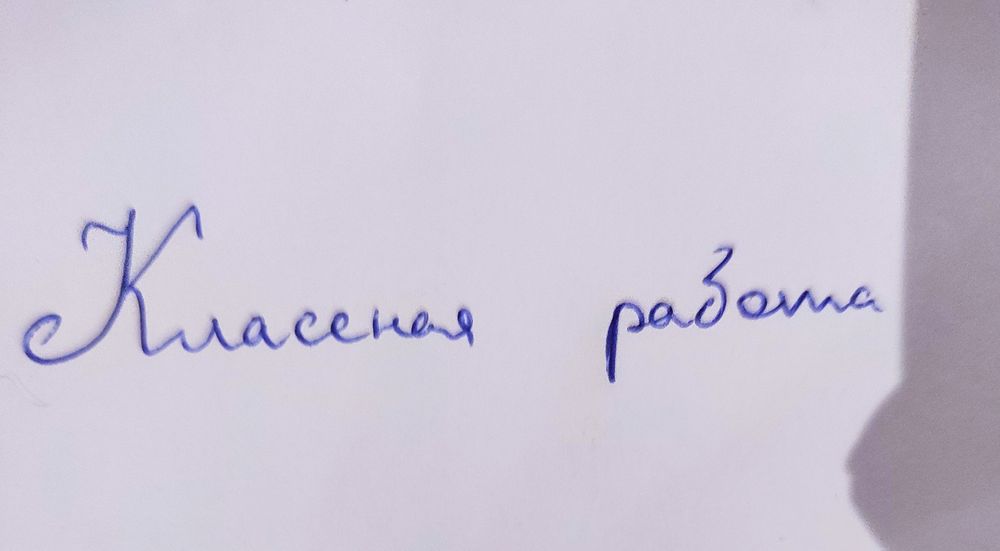 Классная работа